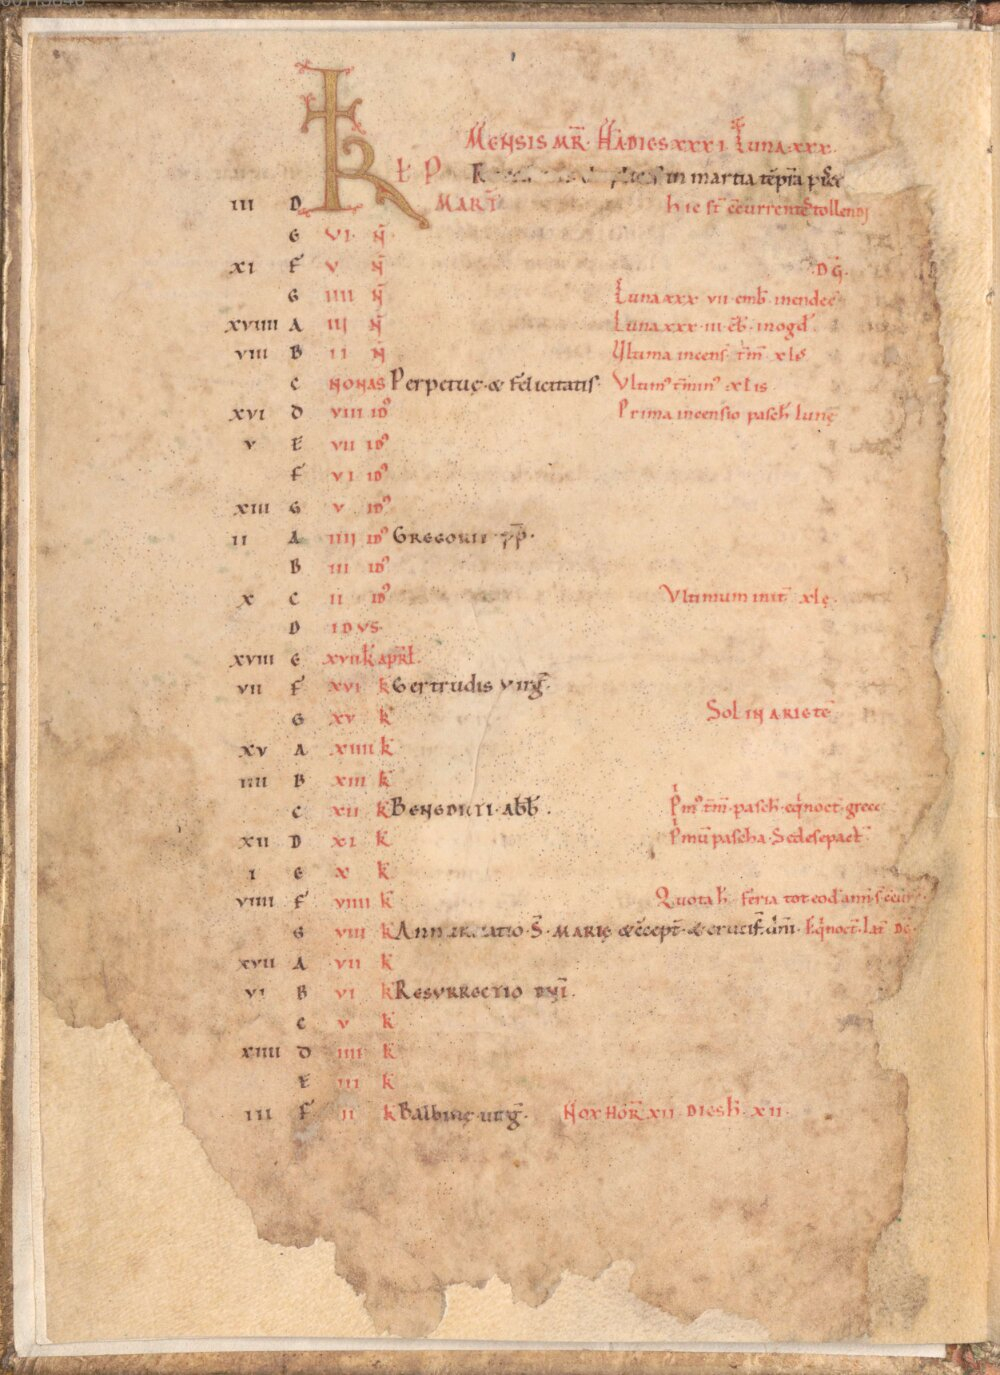 MENSIS MR̄. HA DIES XXXI. LUNA. XXX.
K Ł P in martia tēpīa
III D MART̄ hic st̄ c̄currentes tollendi
E VI. N̄
XI F V N̄ .DḠ.
G IIII N̄ Luna xxx vii emb̄ inendec̄
XVIIII A III N̄ Luna xxx iii ēb̄. inogd̄.
VIII B II N̄ Ultima incens̄ t̄m̄ xls
C NONAS Perpetuę & felicitatis. Ultim⁹ t̄min⁹ xlis
XVI D VIII ID⁹ Prima incensio pasch̄ lunę
V E VII ID⁹
F VI ID⁹
XIII G V ID⁹
II A IIII ID⁹ GREGORII pp̄.
B III ID⁹
X C II ID⁹ Ultimum init̄ xlę.
D IDVS.
XVIII E XVII k̄ apr̄l.
VII F XVI k̄ Gertrudis virḡ.
G XV k̄ SOL IN ARIETĒ
XV A XIIII k̄
IIII B XIII k̄
C XII k̄ BENEDICTI. abb̄. P̄m⁹ t̄m̄. pasch̄. eq̄noct̄. grecc̄
XII D XI k̄ P̄mū pascha. Sedes epact̄
I E X k̄
VIIII F VIIII k̄ Quota h̄ feria tot eod̄ anni s̄
G VIII k̄ Annuntiatio S̄. MARIę & c̄cept̄. & crucif. dn̄i. Eq̄noct̄. Lat̄ DḠ.
XVII A VII k̄
VI B VI k̄ RESURRECTIO DN̄I.
C V k̄
XIIII D IIII k̄
E III k̄
III F II k̄ Balbinę. virḡ. NOX HOR̄ XII. DIES h̄. XII.